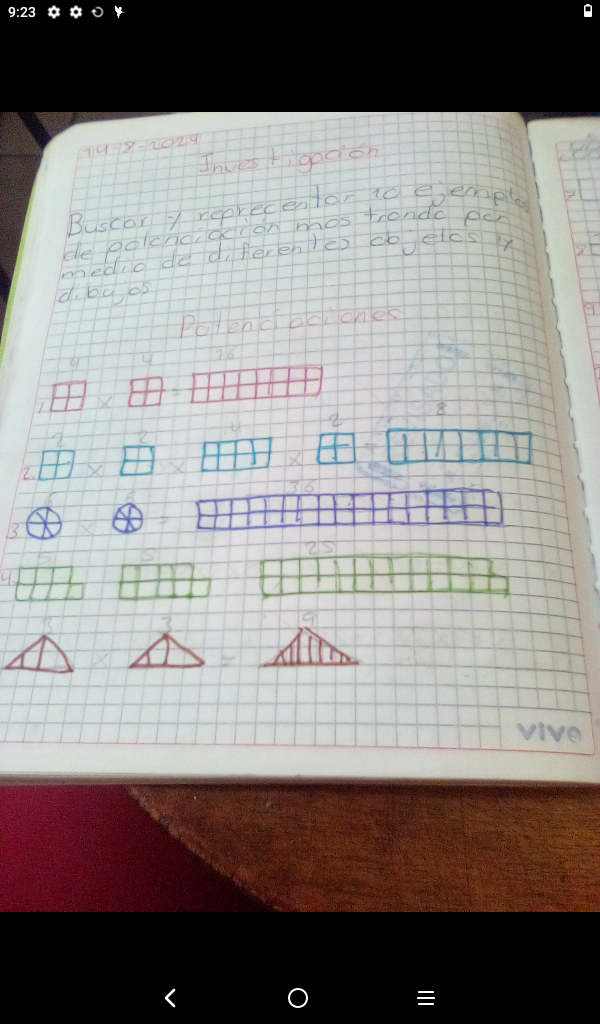 9:23
14-8-2024
Investigación
Buscar y reprecentar 10 ejemplo
de potenciación mos trando por
medio de diferentes objetos y
dibujos
Potenciaciones
4 4 16
1. x =
2 2 4 2 8
2. x x x =
6 6 36
3. x =
5 5 25
4.
3 3 9
x =
vivo